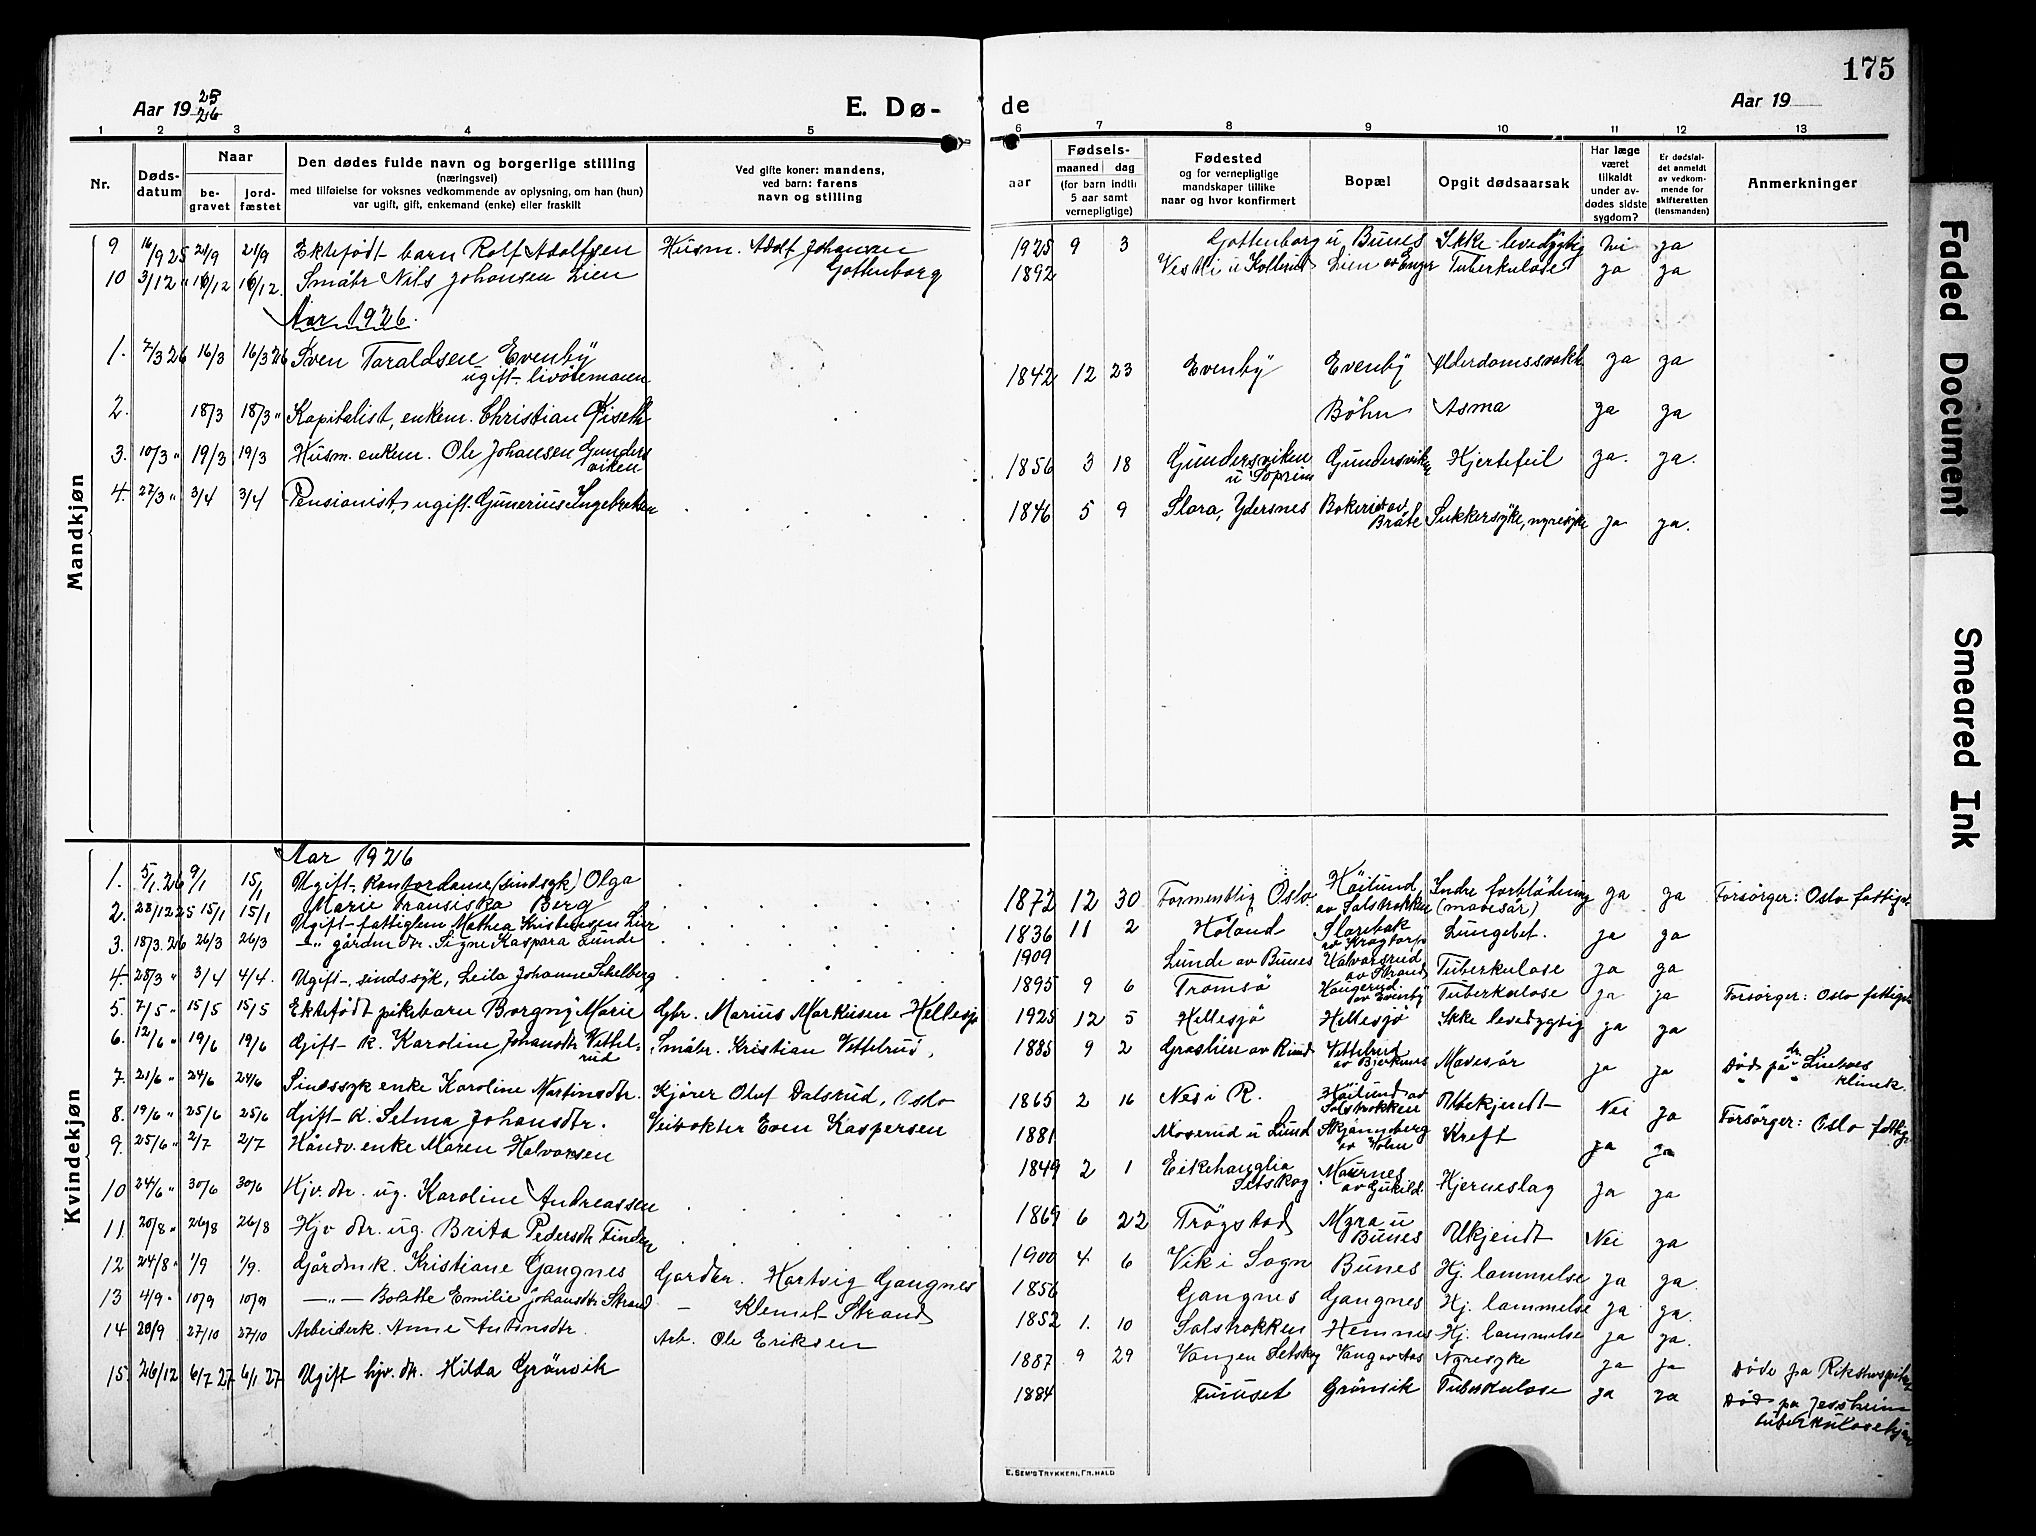 175
Aar 19 25/26
E. Dø- de
Aar 19
1 2 3 4 5 6 7 8 9 10 11 12 13
Nr.
Døds-datum
Naar
be-gravet
jord-fæstet
Den dødes fulde navn og borgerlige stilling
(næringsvei)
med tilføielse for voksnes vedkommende av oplysning, om han (hun)
var ugift, gift, enkemand (enke) eller fraskilt
Ved gifte koner: mandens,
ved barn: farens
navn og stilling
aar
Fødsels-
maaned dag
(for barn indtil
5 aar samt
vernepligtige)
Fødested
og for vernepligtige
mandskaper tillike
naar og hvor konfirmert
Bopæl
Opgit dødsaarsak
Har læge
været
tilkaldt
under av-
dødes sidste
sygdom?
Er dødsfal-
det anmeldt
av vedkom-
mende for
skifteretten
(lensmanden)
Anmerkninger
Mandkjøn
9 16/9 25 21/9 21/9 Ektefødt barn Rolf Adolfsen Husm. Adolf Johansen Gottenborg 1925 9 3 Gottenborg u. Bunes Ikke levedygtig nei ja
10 3/12 " 16/12 16/12. Småbr Nils Johansen Lien 1892 u Kollerud Lien av Enger Tuberkulose ja ja
Aar 1926.
1. 7/3 26 16/3 16/3 26 Sven Taraldsen Evenby
ugift 1842 12 23 Evenby Evenby Alderdomssvakh ja ja
2. 18/3 18/3 " Kapitalist, enkem. Christian Böhn Asma ja ja
3. 10/3 " 19/3 19/3 Husm. enkem. Ole Johansen Gunders
viken 1856 3 18 Gundersviken Gundersviken Hjertefeil ja. ja.
4. 27/3 " 3/4 3/4 Pensionist, ugift. Gunerius Ingebretsen 1846 5 9 Slora, Ydersnes Bråte Sukkersyke, nyresyke ja ja.
Kvindekjøn
Aar 1926
1. 5/1. 26 9/1 15/1 Ugift, Kontordame (sindsyk) Olga
Marie Fransiska Berg 1872 12 30 Formentlig Oslo. Höilund
av Solstrokken Indre forblödning
(mavesår) ja ja Forsörger: Oslo fattigv.
2. 28/12 25 15/1 15/1 Ugift fattiglem Mathea Kristensen Lier 1836 11 2 Höland Slorebak
av Krogtorp Lungebet. ja ja
3. 18/3. 26 26/3 26/3 -"- gårdm dtr. Signe Kaspara Lunde 1909 Lunde av Bunes Halvorsrud
av Strand Tuberkulose ja ja
4. 28/3 " 3/4 4/4. Ugift, sindssyk, Leila Johanne Schelberg 1895 9 6 Tromsö Haugerud
av Evenby Tuberkulose ja ja Forsörger: Oslo fattigv.
5. 7/5 " 15/5 15/5 Ektefödt pikebarn Borgny Marie Gbr. Marius Markusen Hellesjö 1925 12 5 Hellesjö Hellesjö Ikke levedygtig ja ja
6. 12/6 " 19/6 19/6 Gift k. Karoline Johansdtr Vettel-
rud Småbr. Kristian Vettelrud, 1885 9 2 Graslien av Rind Vettelrud
av Bjerkenes Mavesår ja ja Död på dr. Lintoes
" " klinik.
7. 21/6 " 24/6 24/6 Sindssyk enke Karoline Martinsdtr. Kjörer Oluf Dalsrud, Oslo 1865 2 16 Nes i R. Höilund av
Solstrokken Ubekjendt Nei ja Forsörger: Oslo fattigv.
8. 19/6 " 25/6 25/6 Gift k. Selma Johansdtr. Veivokter Even Kaspersen 1881 Moserud u Lund Skjöngsberg
av Holm Kreft ja ja
9. 25/6 " 2/7 2/7 Håndv. enke Maren Halvorsen 1849 2 1 Eikehauglia
Setskog Mournes Hjerneslag ja ja
10 24/6 " 30/6 30/6 Hjv. dtr. ug. Karoline Andreassen 1869 6 22 Trögstad Myra u
Bunes Ukjendt Nei ja
11. 20/8 " 26/8 26/8 Hjv dtr. ug. Brita Pedersdtr Finden 1900 4 6 Vik i Sogn Bunes Hj. lammelse ja ja.
12 24/8 " 1/9 1/9. Gårdm k. Kristiane Gangnes Gardbr. Hartvig Gangnes 1856 Gangnes Gangnes Hj. lammelse ja ja.
13 4/9 " 10/9 10/9 -"- Bolette Emilie Johansdtr Strand - Klemet Strand 1852 1. 10 Solstrokken Hemnes Hj. lammelse ja ja.
14 20/9 27/10 27/10 Arbeiderk. Anne Antonsdtr. Arb. Ole Eriksen 1887 9 29 Vangen Setskog Vang av Aas Nyresyke ja ja Döde på Rikshospitalet
15. 26/12 6/7 27 6/1 27 Ugift hjv. dtr. Hilda Grönsvik 1884 Grönsvik Tuberkulose ja ja Död på Jessheim
tuberkulosehjem
E. SEM'S TRYKKERI, FR. HALD
Faded Document
Smeared Ink